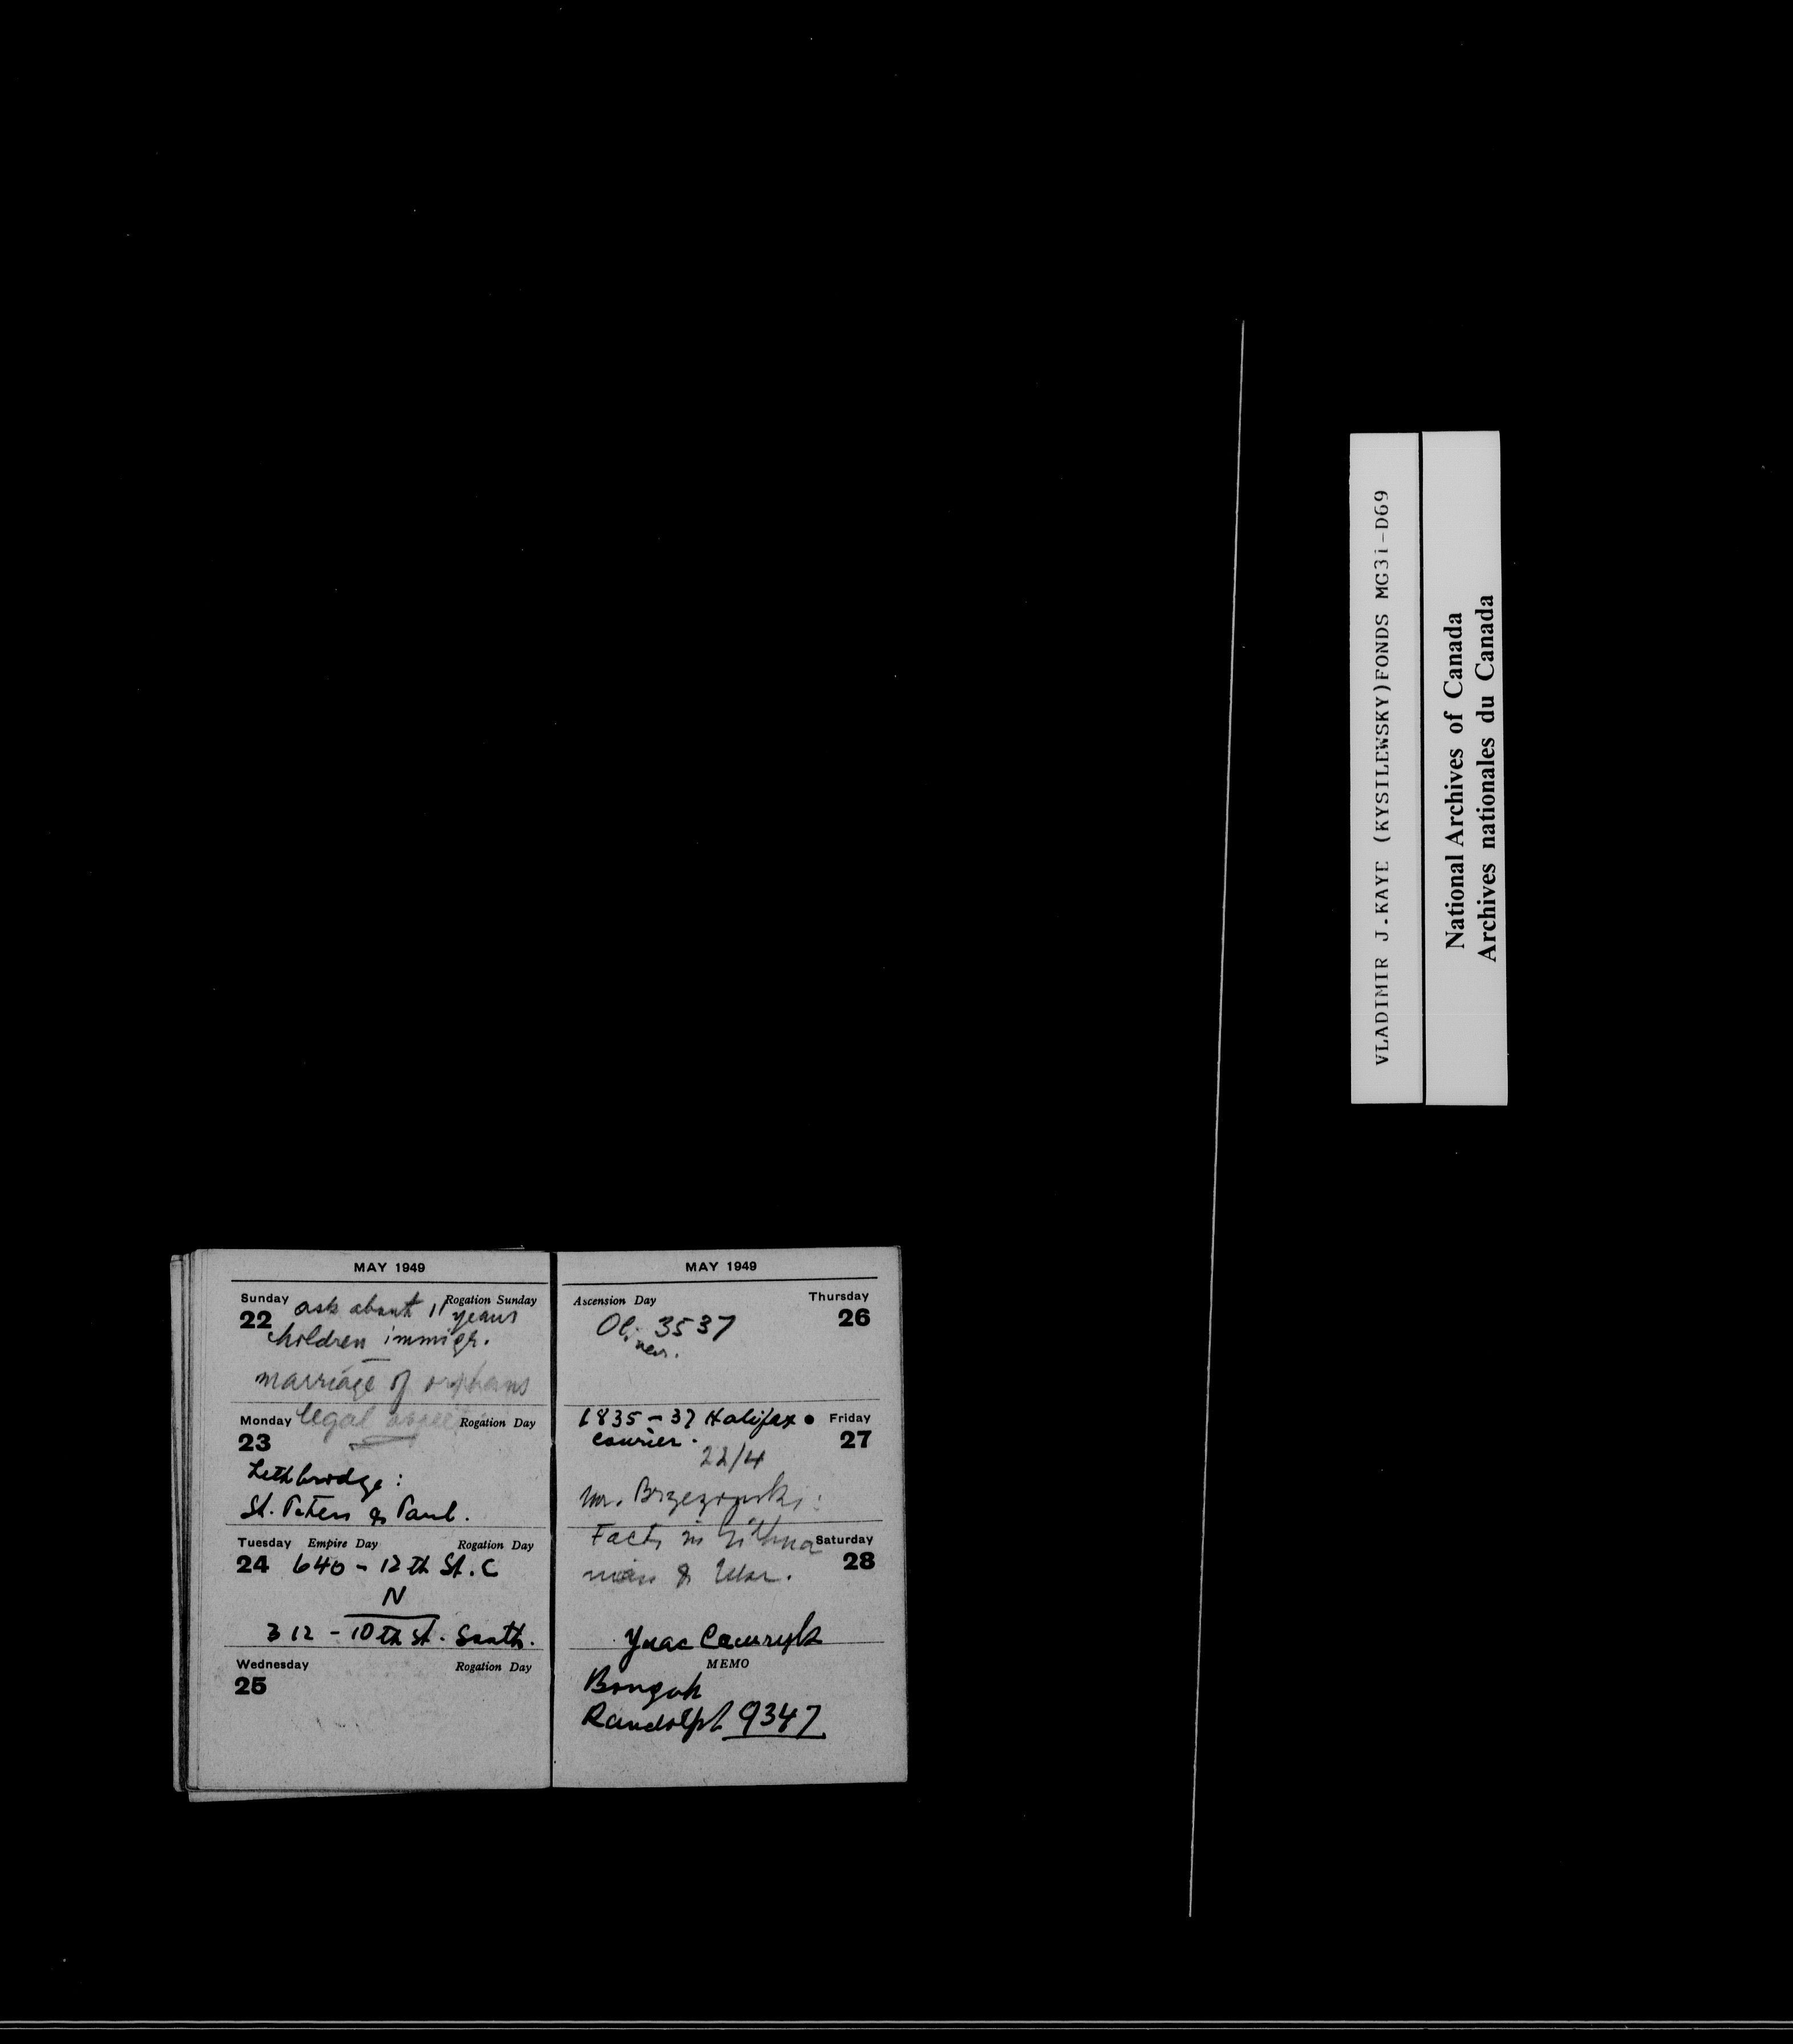 MAY 1949
Sunday Rogation Sunday
22 ask about 11 years
children immigr.
marriage of orphans
legal aspect
Monday Rogation Day
23
Lethbridge:
St. Peters & Paul.
Tuesday Empire Day Rogation Day
24 640 - 12th St. C
N
312 - 10th St. South.
Wednesday Rogation Day
25
MAY 1949
Ascension Day Thursday
26
Ol. 3537
1835-37 Halifax Friday
courier. 27
22/4
Mr.
Facts in
Saturday
28
&
MEMO
Randolph 9347
VLADIMIR J.KAYE (KYSILEWSKY)FONDS MG31-D69
National Archives of Canada
Archives nationales du Canada